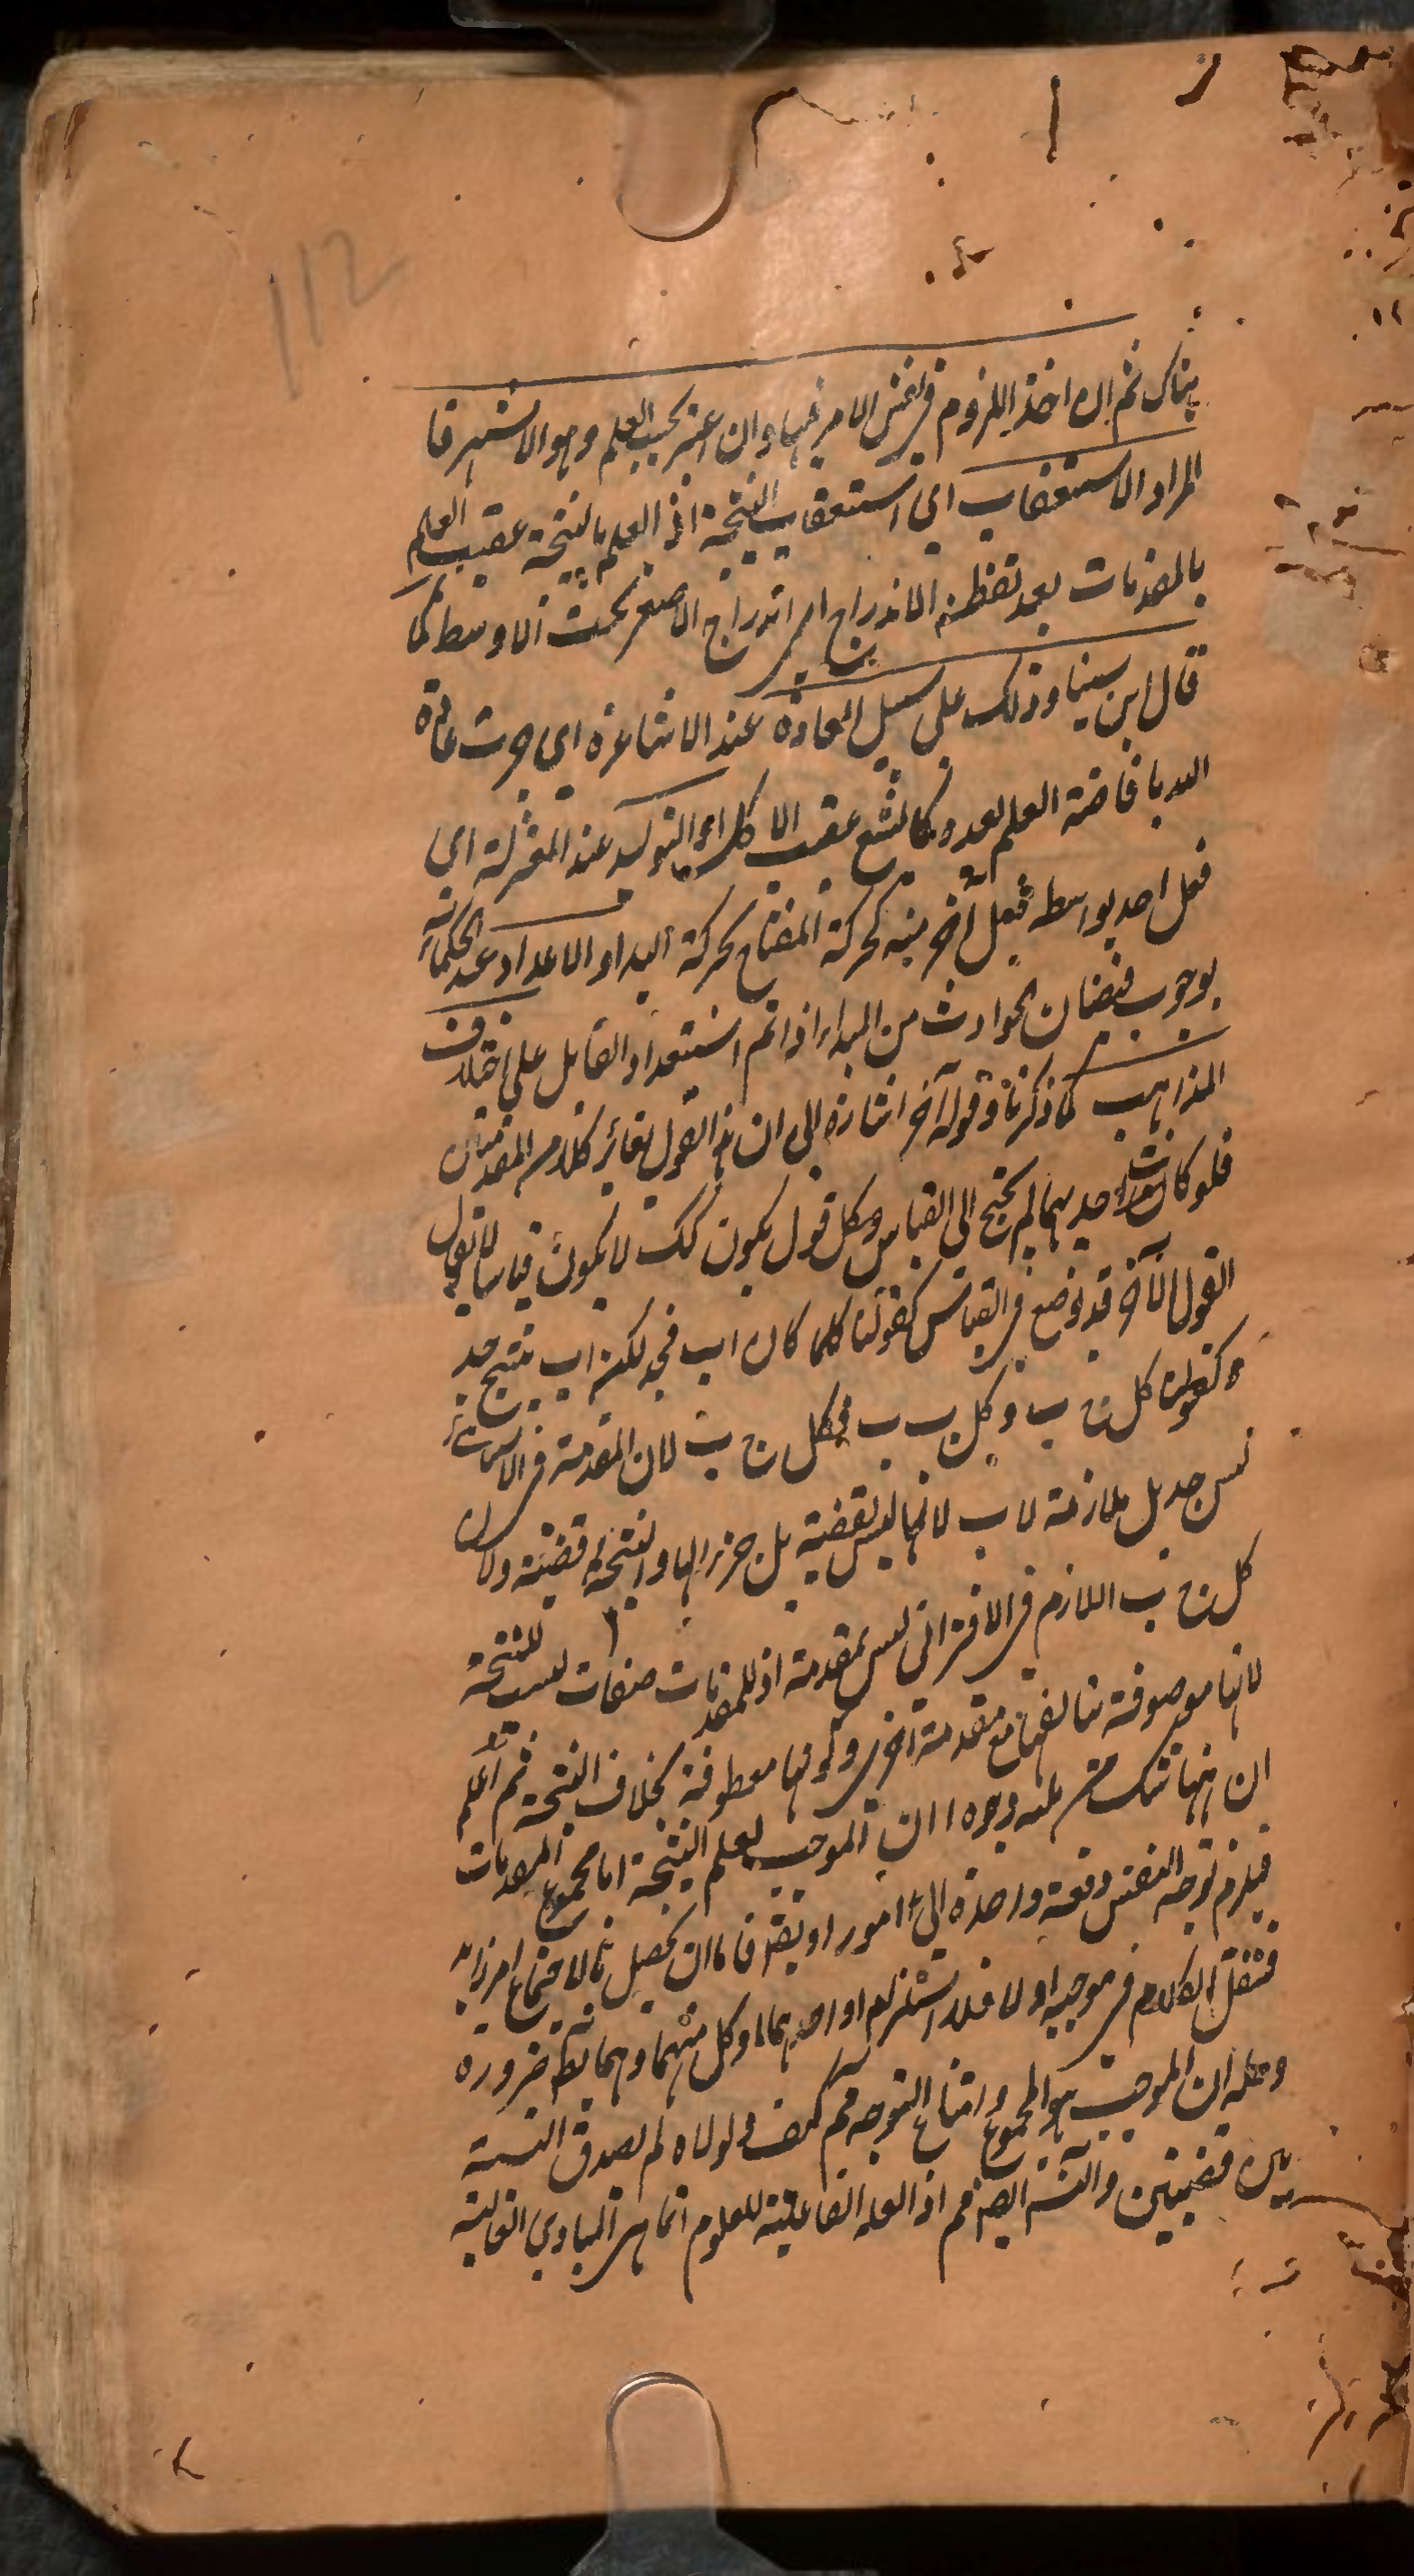 112
هناك ثم ان اخذ اللزوم فى نفس الامر فيها وان اعتبر بحسب العلم وهو الاشهر فا
المراد الاستعقاب اى استعقاب النتيجة اذ العلم بالنتيجة عقيب العلم
بالمقدمات بعد تفطن الاندراج اى اندراج الاصغر تحت الاوسط كما
قال ابن سينا وذلك على سبيل العادة عند الاشاعرة اى جرت عادة
الله بافاضة العلم بعده كالشبع عقيب الاكل او التوليد عند المعتزلة اى
فعل احد بواسطة فعل آخر منه كحركة المفتاح بحركة اليد او الاعداد عند الحكماء
بوجوب فيضان الحوادث من المبداء اذا تم استعداد القابل على اختلاف
المذاهب كما ذكرنا وقوله آخر اشارة الى ان هذا القول يغاير كلا من المقدمتين
فلو كانت احديهما لم يحتج الى القياس وكل قول يكون كك لا يكون قياسا لا يقول
القول الآخر قد يوضع فى القياس كقولنا كلما كان اب فجد لكن اب ينتج جد
وكقولنا كل ج ب وكل ب ب فكل ج ب لان المقدمة فى الاستثنائى
ليس جد بل ملازمة لاب لانها ليس بقضية بل جزء لها والنتيجة قضية ولان
كل ج ب اللازم فى الاقترانى ليس بمقدمة اذ للمقدمات صفات ليست للنتيجة
لانها موصوفة بتالفها مع مقدمة اخرى وكونها معطوفة بخلاف النتيجة ثم اعلم
ان ههنا شك من ثلثه وجوه ا ان الموجب لعلم النتيجة اما مجموع المقدمات
فيلزم توجه النفس دفعة واحدة الى امور او فاما ان يحصل بالاجتماع امر زايد
فننقل الكلام فى موجبه او لا فلا استلزام او احدهما او كل منهما وهما بط ضرورة
وحله ان الموجب هو المجموع وامتناع التوجه مم كيف ولولاه لم يصدق النسبة
بين قضيتين والثانى ايضا مم اذ العلة الفاعلية للعلوم انما هى المبادى العالية